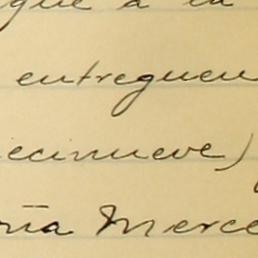 gue a la
entreguen
iecinueve)
ría Merce